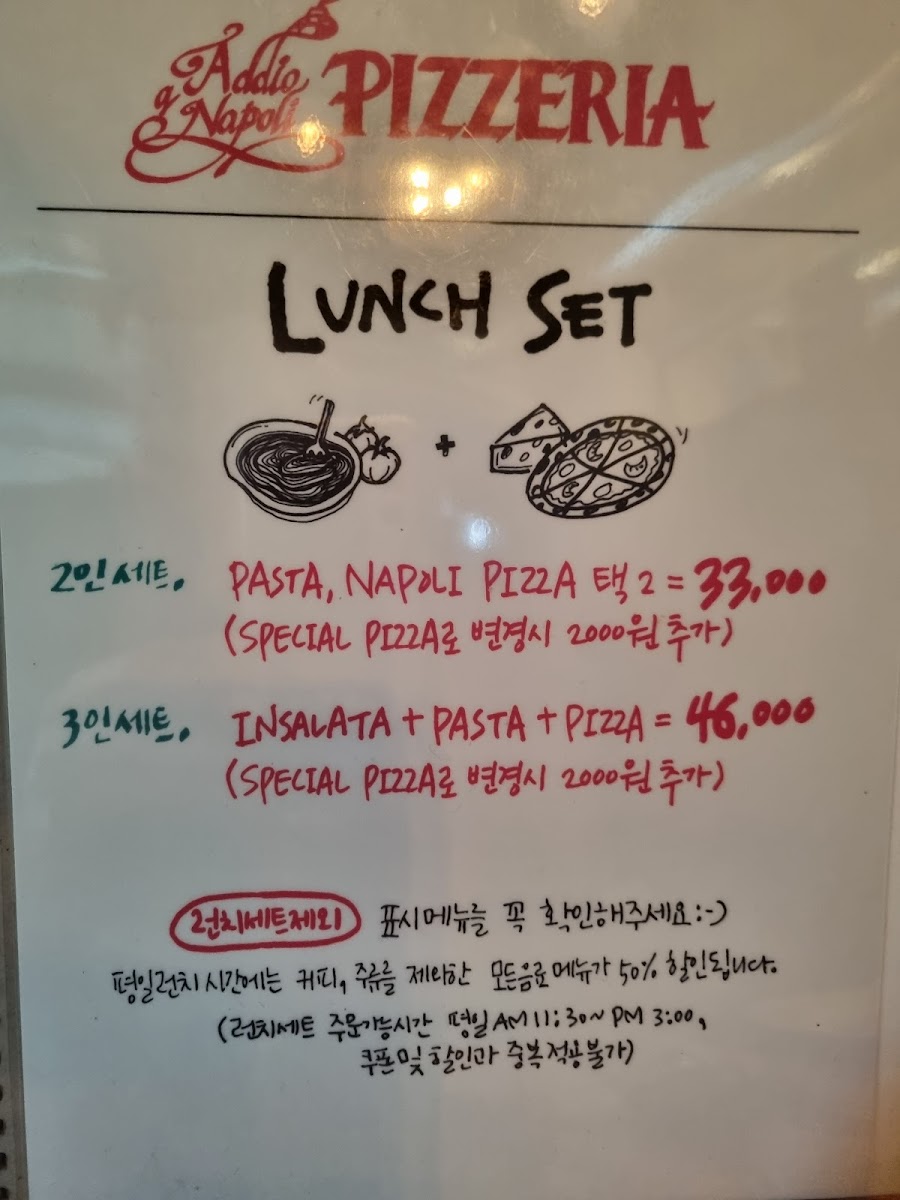 Addio
Napoli PIZZERIA
LUNCH SET
+
2인세트. PASTA, NAPOLI PIZZA 택2 = 33,000
(SPECIAL PIZZA로 변경시 2000원 추가)
3인세트. INSALATA + PASTA + PIZZA = 46,000
(SPECIAL PIZZA로 변경시 2000원 추가)
런치세트제외 표시메뉴를 꼭 확인해주세요:-)
평일런치 시간에는 커피, 주류를 제외한 모든음료메뉴가 50% 할인됩니다.
(런치세트 주문가능시간 평일 AM 11:30~ PM 3:00,
쿠폰 및 할인과 중복적용불가)